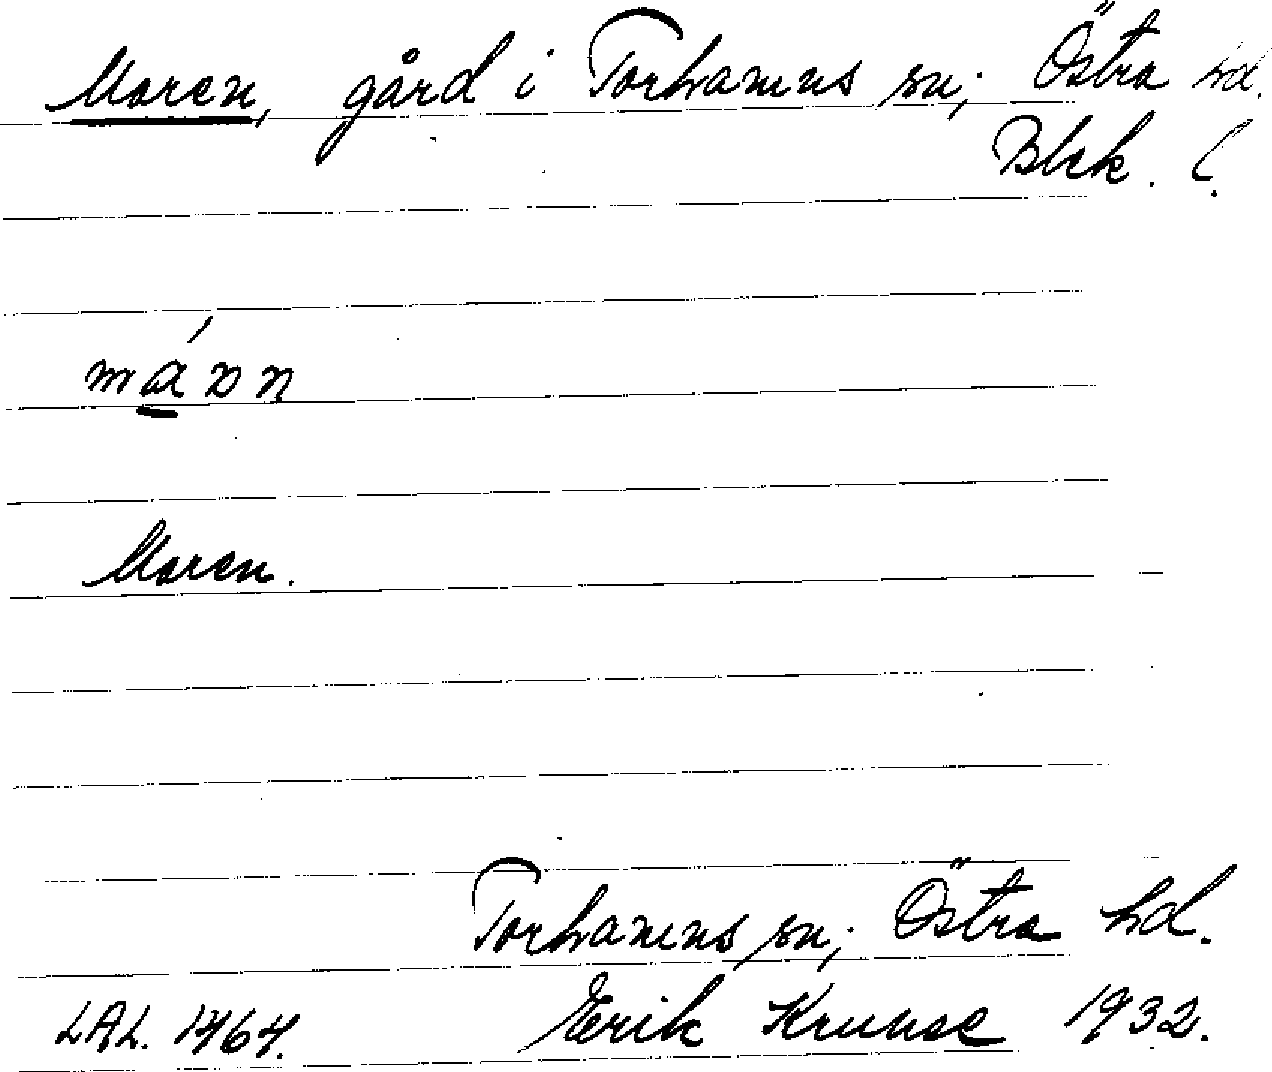 Moren, gård i Torhamns sn; Östra hd.
Blek. L.
máɒn
Moren.
Torhamns sn; Östra hd.
LAL. 1464. Erik Kruuse 1932.